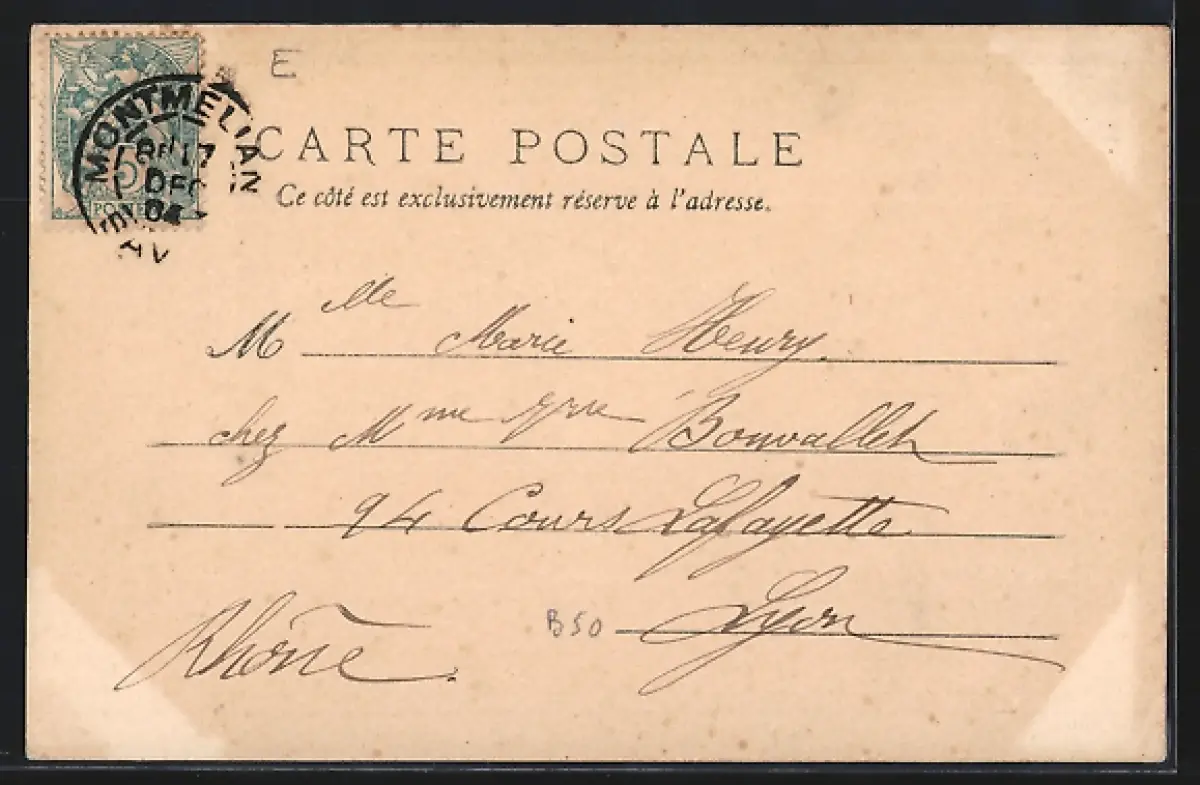 E
MONTMÉLIAN
17
DEC
04
5
POSTE
CARTE POSTALE
Ce côté est exclusivement réserve à l'adresse.
Mlle Marie Henry
chez Mme Bonvallet
94 Cours Lafayette
B50 Lyon
Rhône.